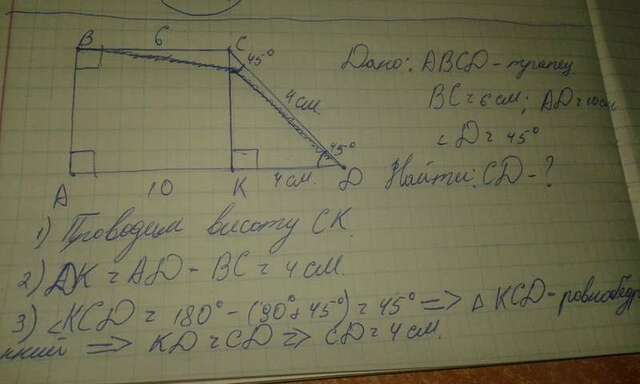 B 6 C
45°
4 см.
45°
A 10 K 4 см. D
Дано: ABCD - трапец
BC = 6 см; AD = 10 см
∠D = 45°
Найти: CD - ?
1) Проводим высоту CK.
2) DK = AD - BC = 4 см.
3) ∠KCD = 180° - (90° + 45°) = 45° => △ KCD - равнобедр
нний => KD = CD => CD = 4 см.